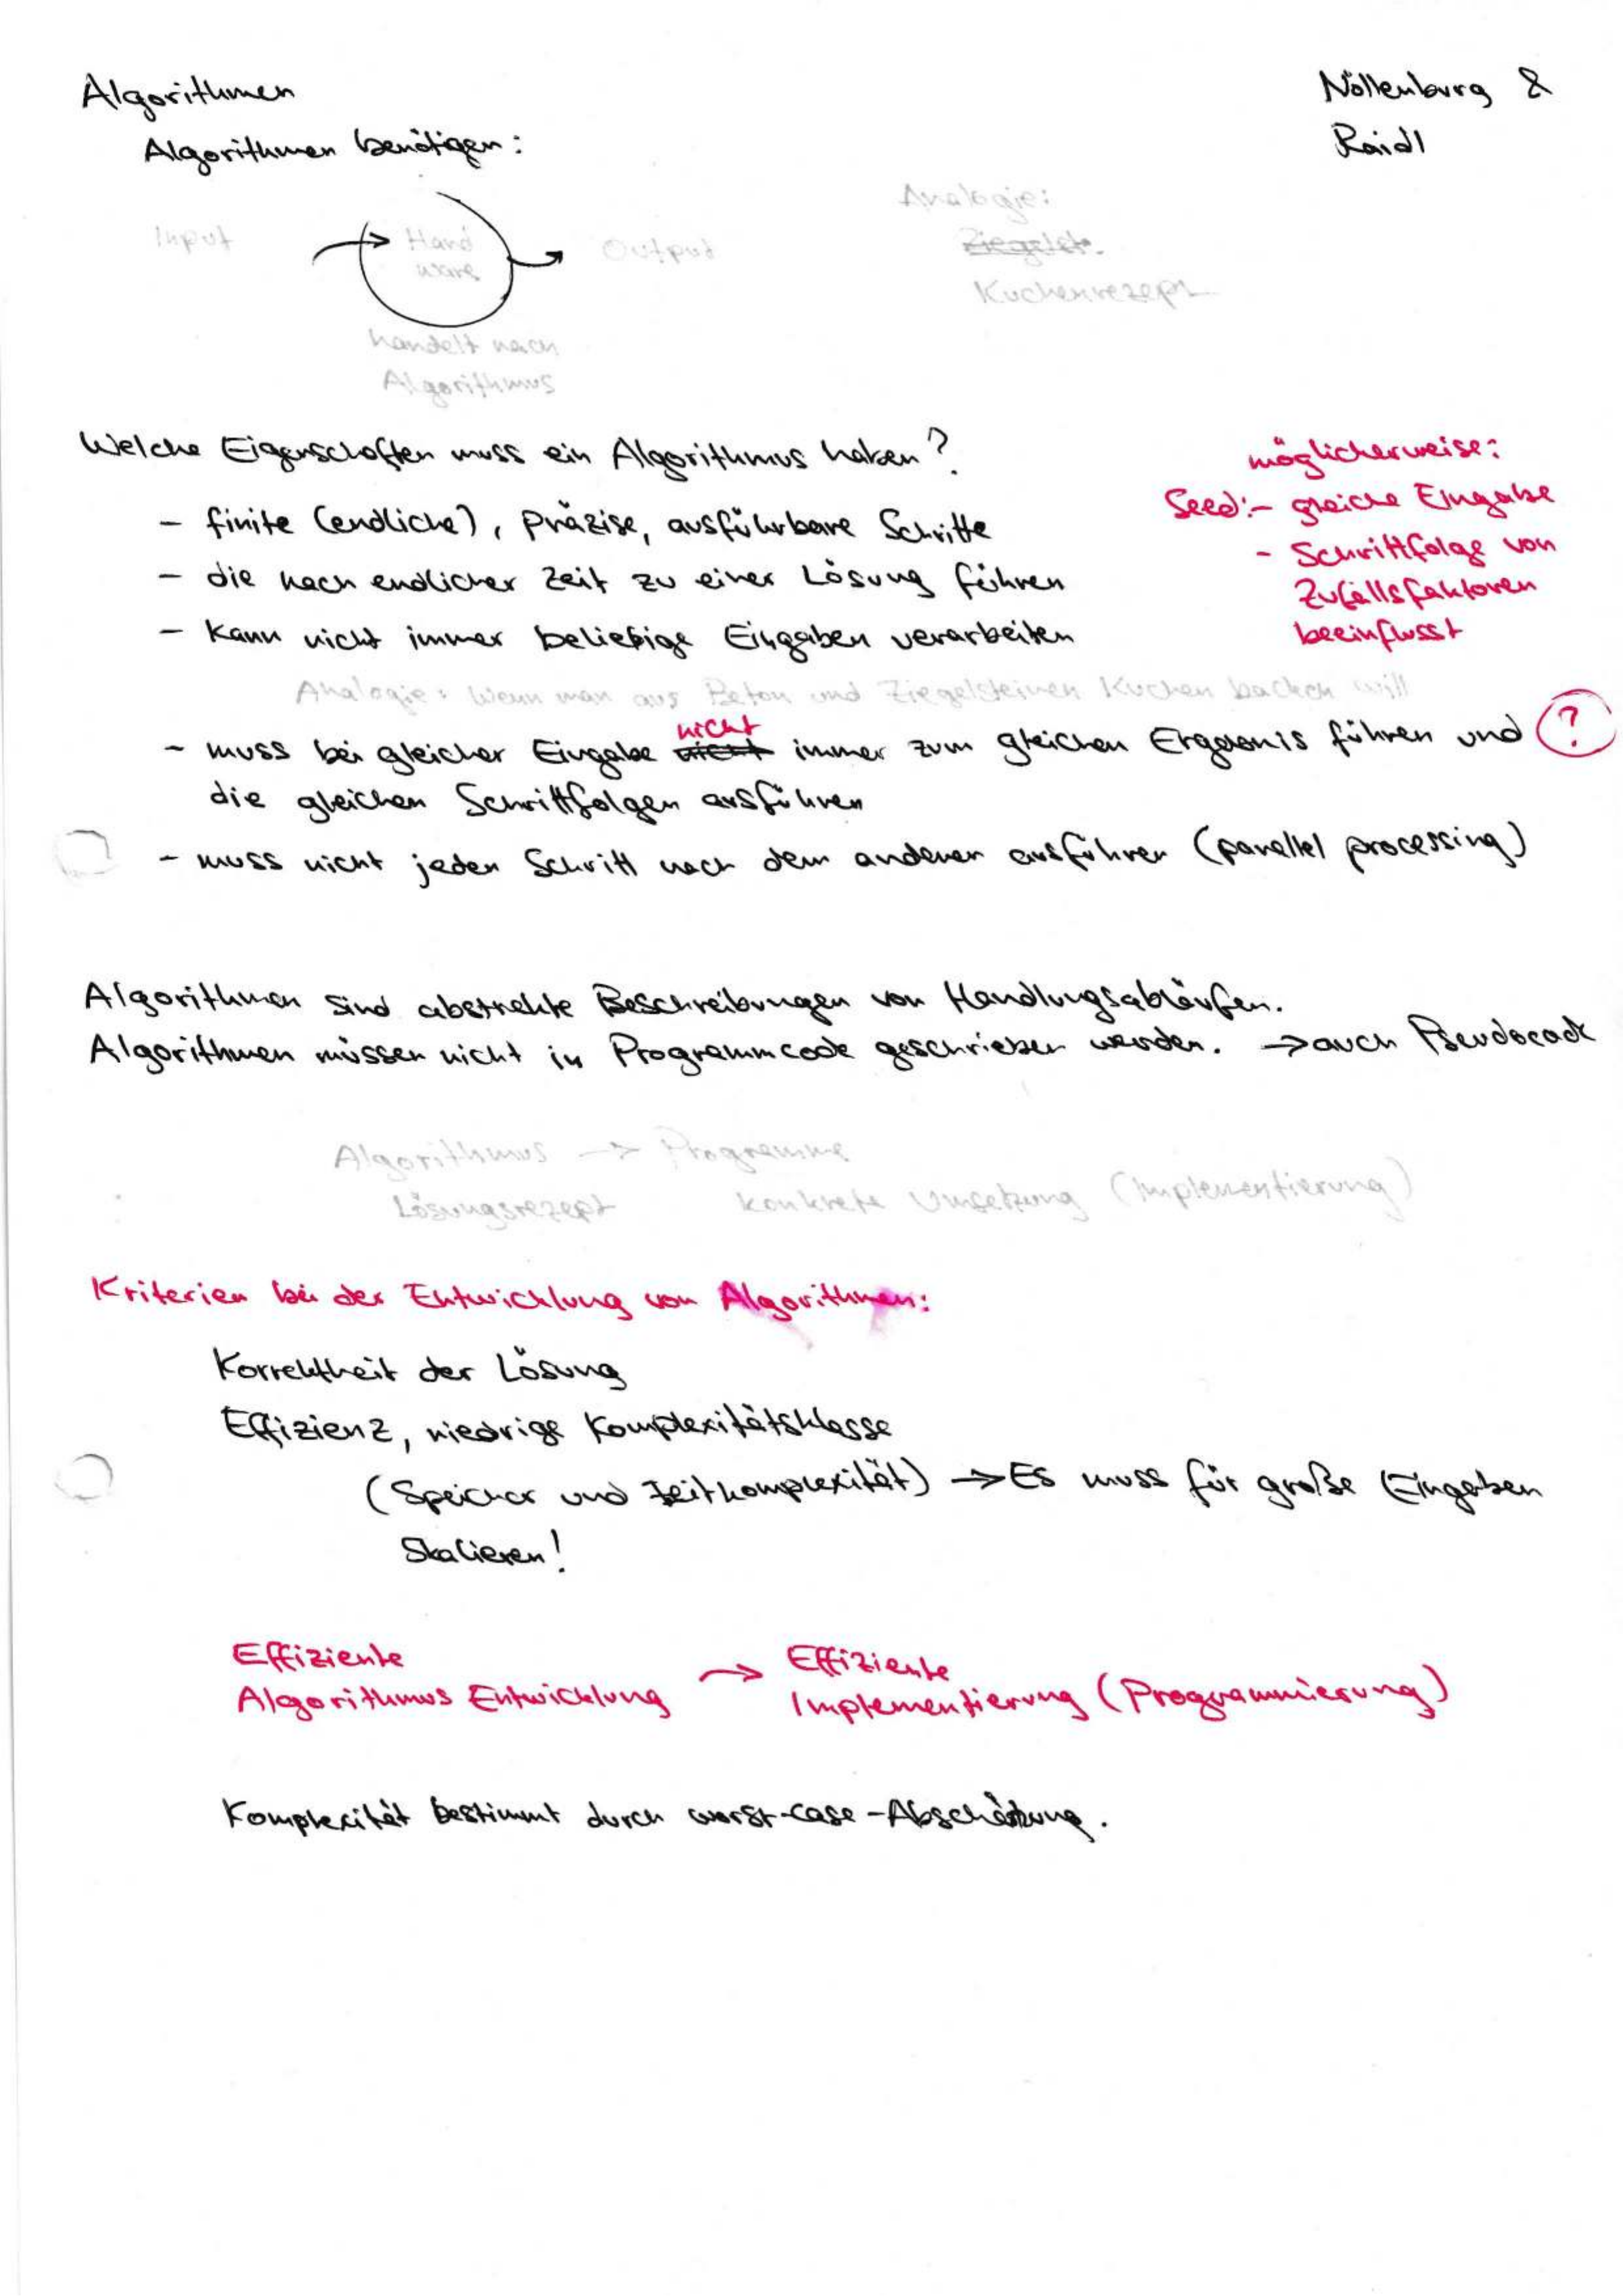 Algorithmen
Nöllenburg &
Raidl
Algorithmen benötigen:
Input
Hard
ware
Output
handelt nach
Algorithmus
Analogie:
Ziegelst.
Kuchenrezept
Welche Eigenschaften muss ein Algorithmus haben?
- finite (endliche), präzise, ausführbare Schritte
- die nach endlicher Zeit zu einer Lösung führen
- Kann nicht immer beliebige Eingaben verarbeiten
möglicherweise:
Seed: - gleiche Eingabe
- Schrittfolge von
Zufallsfaktoren
beeinflusst
Analogie: Wenn man aus Beton und Ziegelsteinen Kuchen backen will
nicht
- muss bei gleicher Eingabe nicht immer zum gleichen Ergebnis führen und ?
die gleichen Schrittfolgen ausführen
- muss nicht jeden Schritt nach dem anderen ausführen (parallel processing)
Algorithmen sind abstrakte Beschreibungen von Handlungsabläufen.
Algorithmen müssen nicht in Programmcode geschrieben werden. → auch Pseudocode
Algorithmus → Programme
Lösungsrezept konkrete Umsetzung (Implementierung)
Kriterien bei der Entwicklung von Algorithmen:
Korrektheit der Lösung
Effizienz, niedrige Komplexitätsklasse
(Speicher und Zeitkomplexität) → Es muss für große Eingaben
Skalieren!
Effiziente
Algorithmus Entwicklung
→ Effiziente
Implementierung (Programmierung)
Komplexität bestimmt durch worst-case-Abschätzung.